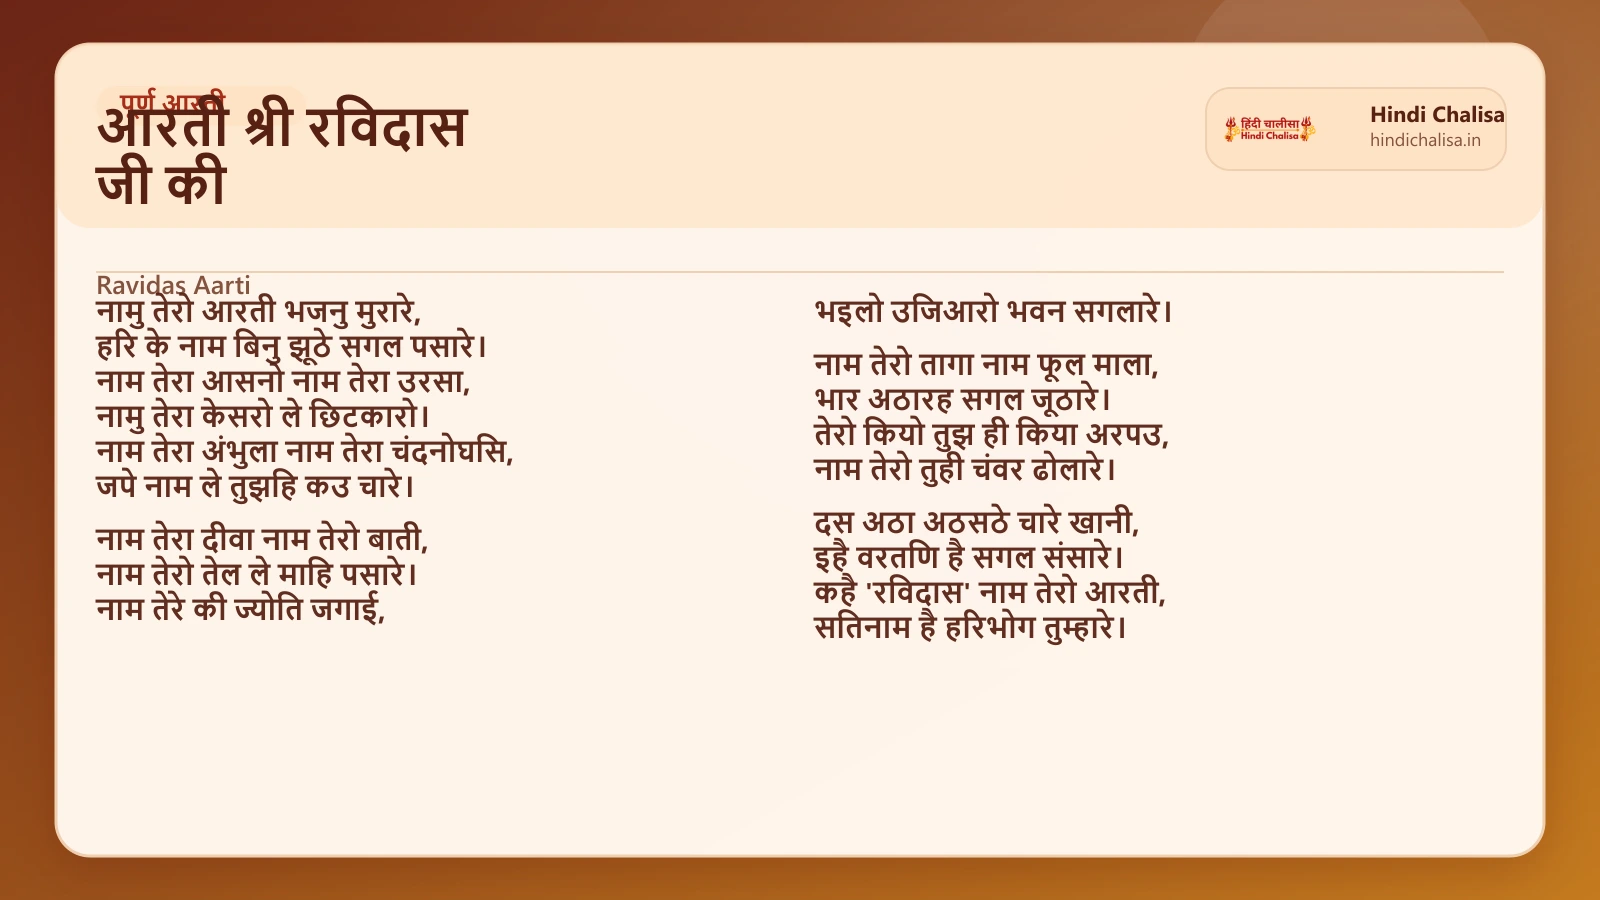 पूर्ण आरती
आरती श्री रविदास
जी की
हिंदी चालीसा
Hindi Chalisa
Hindi Chalisa
hindichalisa.in
Ravidas Aarti
नामु तेरो आरती भजनु मुरारे,
हरि के नाम बिनु झूठे सगल पसारे।
नाम तेरा आसनो नाम तेरा उरसा,
नामु तेरा केसरो ले छिटकारो।
नाम तेरा अंभुला नाम तेरा चंदनोघसि,
जपे नाम ले तुझहि कउ चारे।
नाम तेरा दीवा नाम तेरो बाती,
नाम तेरो तेल ले माहि पसारे।
नाम तेरे की ज्योति जगाई,
भइलो उजिआरो भवन सगलारे।
नाम तेरो तागा नाम फूल माला,
भार अठारह सगल जूठारे।
तेरो कियो तुझ ही किया अरपउ,
नाम तेरो तुही चंवर ढोलारे।
दस अठा अठसठे चारे खानी,
इहै वरतणि है सगल संसारे।
कहै 'रविदास' नाम तेरो आरती,
सतिनाम है हरिभोग तुम्हारे।